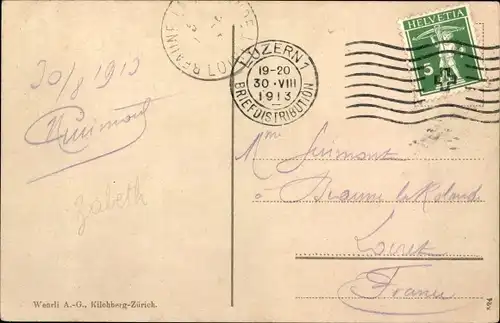 30/8 1913
Guimont
Zabeth
Wehrli A.-G., Kilchberg-Zürich.
BEAUNE LA
LOIRET
LUZERN 1
19-20
30·VIII
1913
BRIEFDISTRIBUTION
HELVETIA
5
Mme Guimont
à Beaune la Rolande
Loiret
France